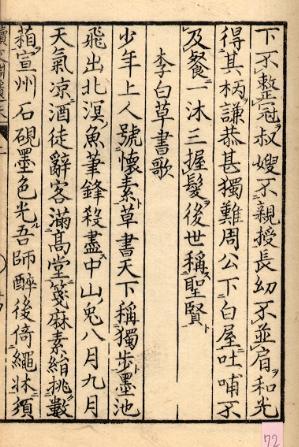 下不整冠叔嫂不親授長幼不並肩和光
得其柄謙恭甚獨難周公下白屋吐哺不
及餐一沐三握髮後世稱聖賢
李白草書歌
少年上人號懷素草書天下稱獨步墨池
飛出北溟魚筆鋒殺盡中山兔八月九月
天氣凉酒徒辭客滿高堂箋麻素絹排數
箱宣州石硯墨色光吾師醉後倚繩牀須
72